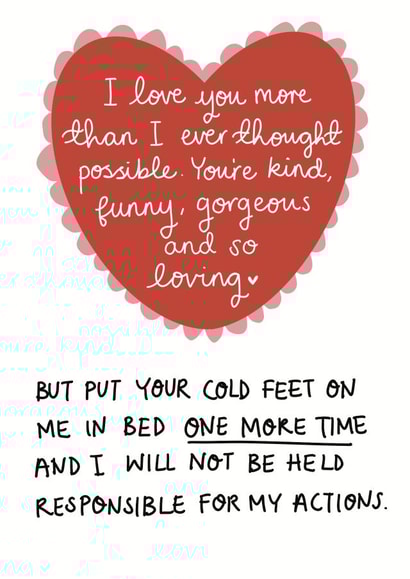 I love you more
than I ever thought
possible. You're kind,
funny, gorgeous
and so
loving
BUT PUT YOUR COLD FEET ON
ME IN BED ONE MORE TIME
AND I WILL NOT BE HELD
RESPONSIBLE FOR MY ACTIONS.